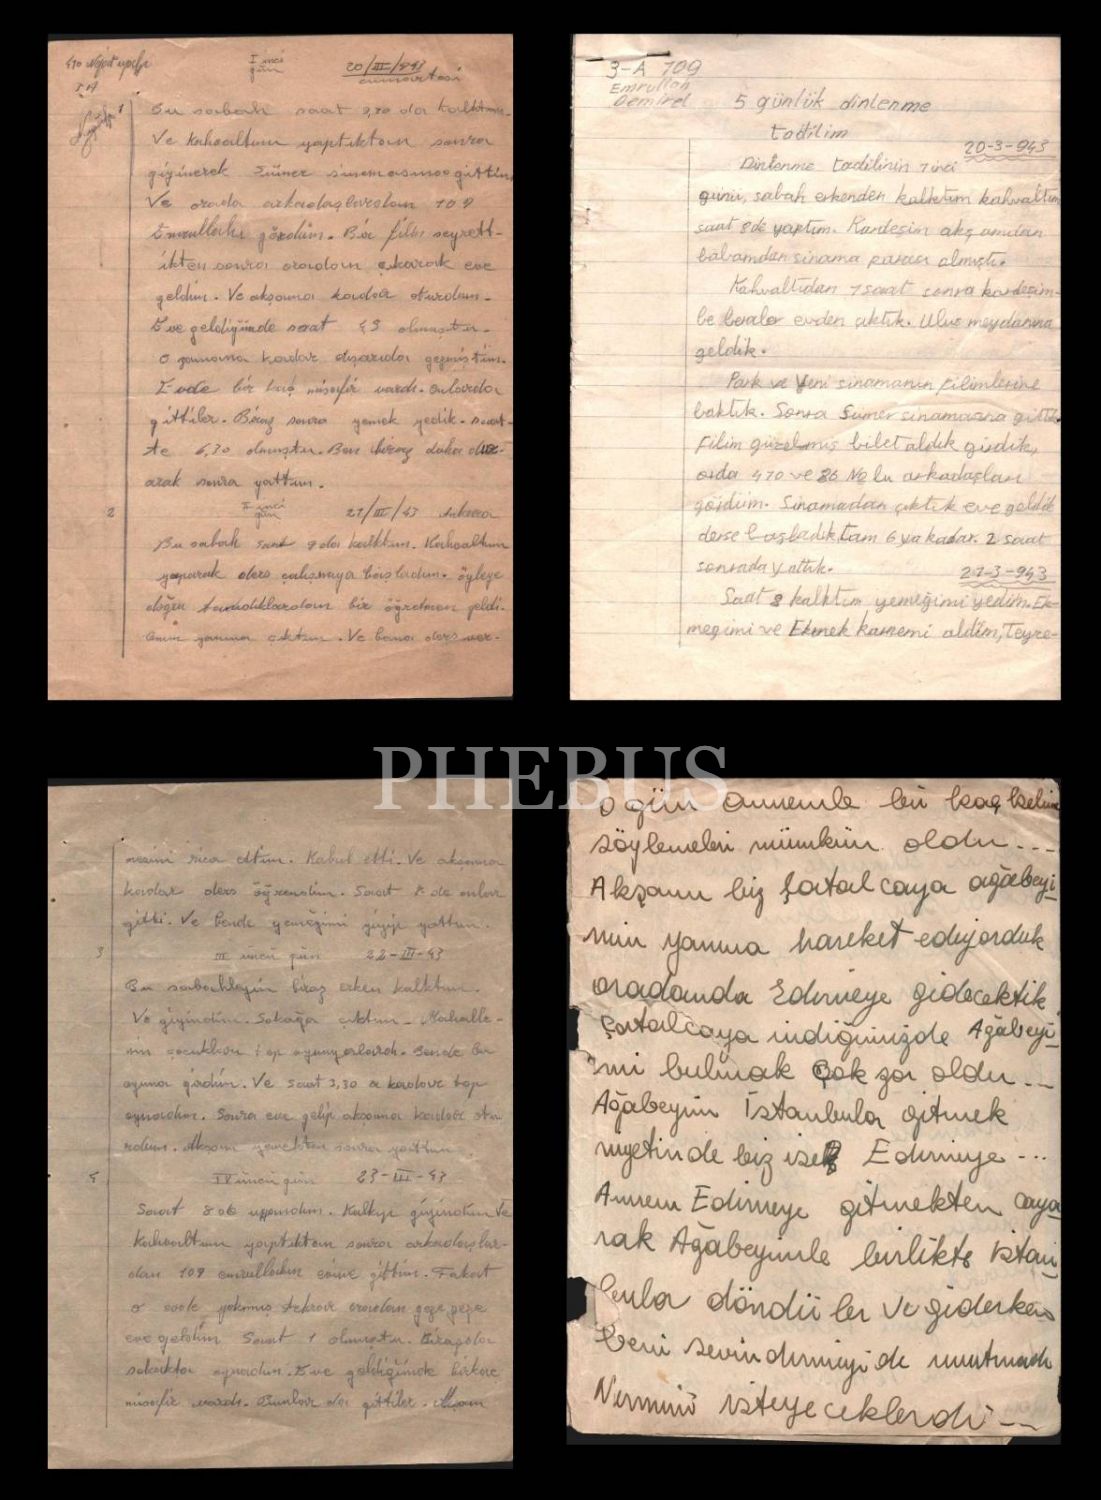 I inci
gün
20/III/943
cumartesi
1
Bu sabah saat 9,30 da kalktım.
Ve kahvaltımı yaptıktan sonra
giyinerek Sümer sinemasına gittim
Ve orada arkadaşlardan 109
Emrullahı gördüm. Bir film seyrett-
ikten sonra oradan çıkarak eve
geldim. Ve akşama kadar oturdum.
Eve geldiğimde saat olmuştu.
o zamana kadar dışarıda gezmiştim.
Evde bir kaç misafir vardı. onlarda
gittiler. Biraz sonra yemek yedik. saat-
te 6,30 olmuştu. Ben biraz daha
arak sonra yattım.
2
inci
gün
21/III/43 Ankara
Bu sabah saat 9 da kalktım. Kahvaltımı
yaparak ders çalışmaya başladım. öyleye
doğru tanıdıklardan bir öğretmen geldi.
Onun yanına çıktım. Ve bana ders ver-
3-A 109
Emrullah
Demirel
5 günlük dinlenme
tadilim
20-3-943
Dinlenme tadilinin 1 inci
günü, sabah erkenden kalktım kahvaltımı
saat 8 de yaptım. Kardeşim akşamdan
babamdan sinama parası almıştı.
Kahvaltıdan 1 saat sonra kardeşim-
le beraber evden çıktık. Ulus meydanına
geldik.
Park ve Yeni sinamanın filimlerine
baktık. Sonra Sümer sinamasına gittik.
Filim güzelmiş bilet aldık girdik,
orda 470 ve 86 No lu arkadaşları
gördüm. Sinamadan çıktık eve geldik
derse başladık tam 6 ya kadar. 2 saat
sonrada yattık.
21-3-943
Saat 8 kalktım yemeğimi yedim. Ek-
meğimi ve Ekmek karnemi aldım, Teyze-
PHEBUS
mesini rica ettim. Kabul etti. Ve akşama
kadar ders öğrendim. Saat 8 de onlar
gitti. Ve bende yemeğimi yiyip yattım.
3
III üncü gün 22-III-43
Bu sabahleyin biraz erken kalktım.
Ve giyindim. Sokağa çıktım. Mahalle-
nin çocukları top oynuyorlardı. Bende bu
oyuna girdim. Ve saat 3,30 a kadar top
oynadım. Sonra eve gelip akşama kadar otu
rdum. Akşam yemekten sonra yattım.
4
IV üncü gün 23-III-43
Saat 8 de uyandım. Kalkıp giyindim Ve
Kahvaltımı yaptıktan sonra arkadaşlar-
dan 109 emrullahın evine gittim. Fakat
o evde yokmuş tekrar oradan geze geze
eve geldim. Saat 1 olmuştu. Birazda
sokakta oynadım. Eve geldiğimde birkaç
misafir vardı. Bunlar da gittiler. Akşam
o gün annemle bir kaç kelime
söylemeleri mümkün oldu...
Akşam biz Çatalcaya ağabeyi-
min yanına hareket ediyorduk
oradanda Edirneye gidecektik
Çatalcaya indiğimizde Ağabeyi-
mi bulmak çok zor oldu...
Ağabeyim İstanbula gitmek
niyetinde biz ise Edirneye...
Annem Edirneye gitmekten caya
rak Ağabeyimle birlikte İstan-
bula döndüler Ve giderken
beni sevindirmeyi de unutmadı
Nermini isteyeceklerdi...